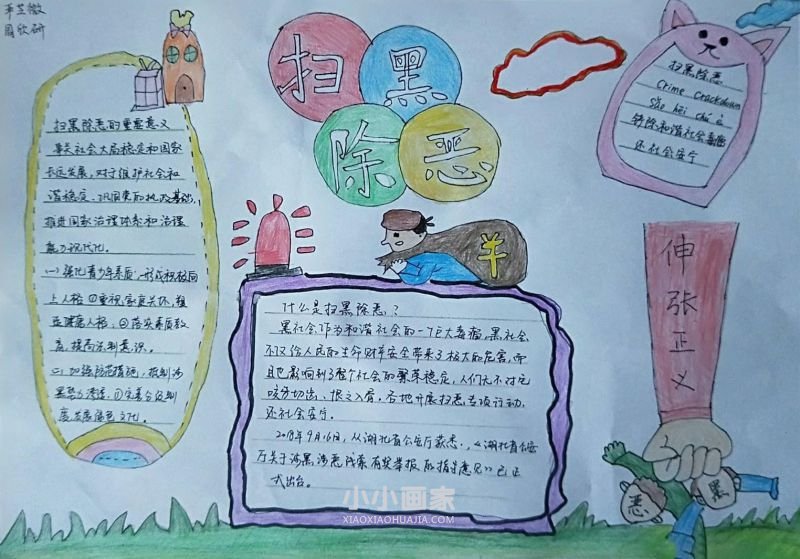 扫黑除恶
扫黑除恶的重要意义
事关社会大局稳定和国家
长远发展,对于维护社会和
谐稳定、巩固党的执政基础,
推进国家治理体系和治理
能力现代化。
(一)强化青少年素质,形成积极向
上人格①重视家庭关怀,
健康人格,②落实素质教
育,提高法制意识。
(二)加强防范措施,抵制涉
黑势力渗透,①完善
度发展绿色文化。
扫黑除恶
Crime Crackdown
sǎo hēi chú è
铲除和谐社会毒瘤
还社会安宁
羊
伸张正义
恶
黑
什么是扫黑除恶?
黑社会作为和谐社会的一个巨大毒瘤,黑社会
不仅给人民的生命财产安全带来了极大的危害,而
且也影响到了整个社会的繁荣稳定,人们无不对它
咬牙切齿、恨之入骨。各地开展扫恶专项行动,
还社会安宁。
月16日,从湖北省公安厅获悉,《湖北省公安
厅关于涉黑涉恶线索有奖举报的指导意见》已正
式出台。
小小画家
XIAOXIAOHUAJIA.COM